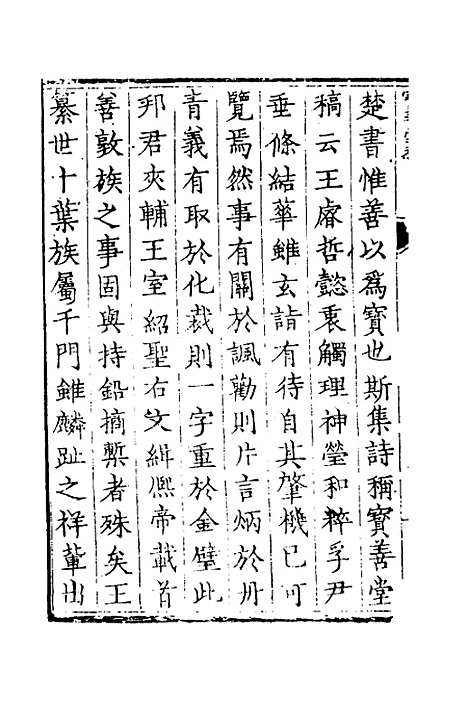 楚書惟善以爲寳也斯集詩稱寳善堂
稿云王睿哲懿衷觸理神瑩和粹孚尹
垂條結華雖玄詣有待自其肇機已可
覽焉然事有關於諷勸則片言炳於丹
青義有取於化裁則一字重於金璧此
邦君夾輔王室紹聖右文緝熈帝載首
善敦族之事固與持鉛摘槧者殊矣王
纂世十葉族屬千門雖麟趾之祥萆出